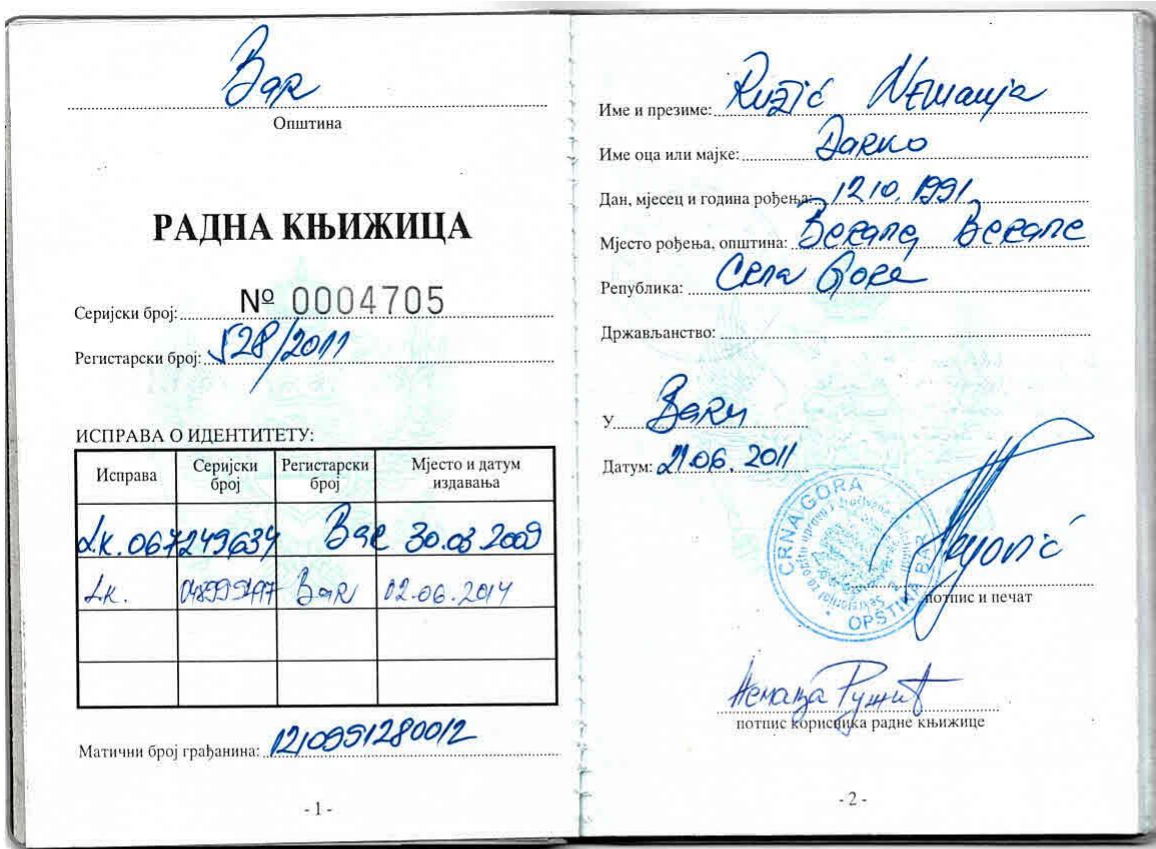 Bar
Општина
РАДНА КЊИЖИЦА
Серијски број: № 0004705
Регистарски број: 528/2011
ИСПРАВА О ИДЕНТИТЕТУ:
Исправа Серијски број Регистарски број Мјесто и датум издавања
Lk. 067249634 Bar 30.03.2009
Lk. Bar 02.06.2014
Матични број грађанина: 1210991280012
- 1 -
Име и презиме: Ružić Nemanja
Име оца или мајке: Darko
Дан, мјесец и година рођења: 12 10. 1991.
Мјесто рођења, општина: Berane, Berane
Република: Crna Gora
Држављанство:
У Baru
Датум: 21.06. 2011
CRNA GORA
OPŠTINA BAR
потпис и печат
Немања Ружић
потпис корисника радне књижице
- 2 -